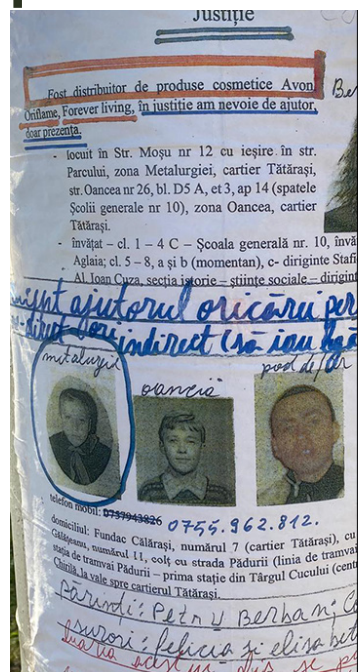 Justiție
Fost distribuitor de produse cosmetice Avon,
Oriflame, Forever living, în justiție am nevoie de ajutor,
doar prezența.
- locuit în Str. Moșu nr 12 cu ieșire în str.
Parcului, zona Metalurgiei, cartier Tătărași,
str. Oancea nr 26, bl. D5 A, et 3, ap 14 (spatele
Școlii generale nr 10), zona Oancea, cartier
Tătărași.
- învățat – cl. 1 – 4 C – Școala generală nr. 10, învă
Aglaia; cl. 5 – 8, a și b (momentan), c- diriginte Stafi
Al. Ioan Cuza, secția istorie – științe sociale – dirigint
ajutorul oricărui per
indirect (să iau
metalurgie
oancia
pod de
telefon mobil: 0737943826 0755.962.812.
domiciliul: Fundac Călărași, numărul 7 (cartier Tătărași), cu
Gălășeanu, numărul 11, colț cu strada Pădurii (linia de tramvai
stația de tramvai Pădurii – prima stație din Târgul Cucului (cent
Chirilă, la vale spre cartierul Tătărași.
părinți: Petru V Berhan; C
surori: felicia și elisabet